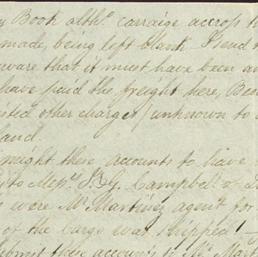 y Book altho. carraige accross t
made, being left blank. I send
ware that it must have been an
have paid the freight here, Bes
sted other charges / unknown to
and.
might these accounts to have
y to Messrs. J & G. Campbell &
s were Mr. Martinez agent for
of the cargo was shipped! —
ubmit these accounts to Mr. Mart